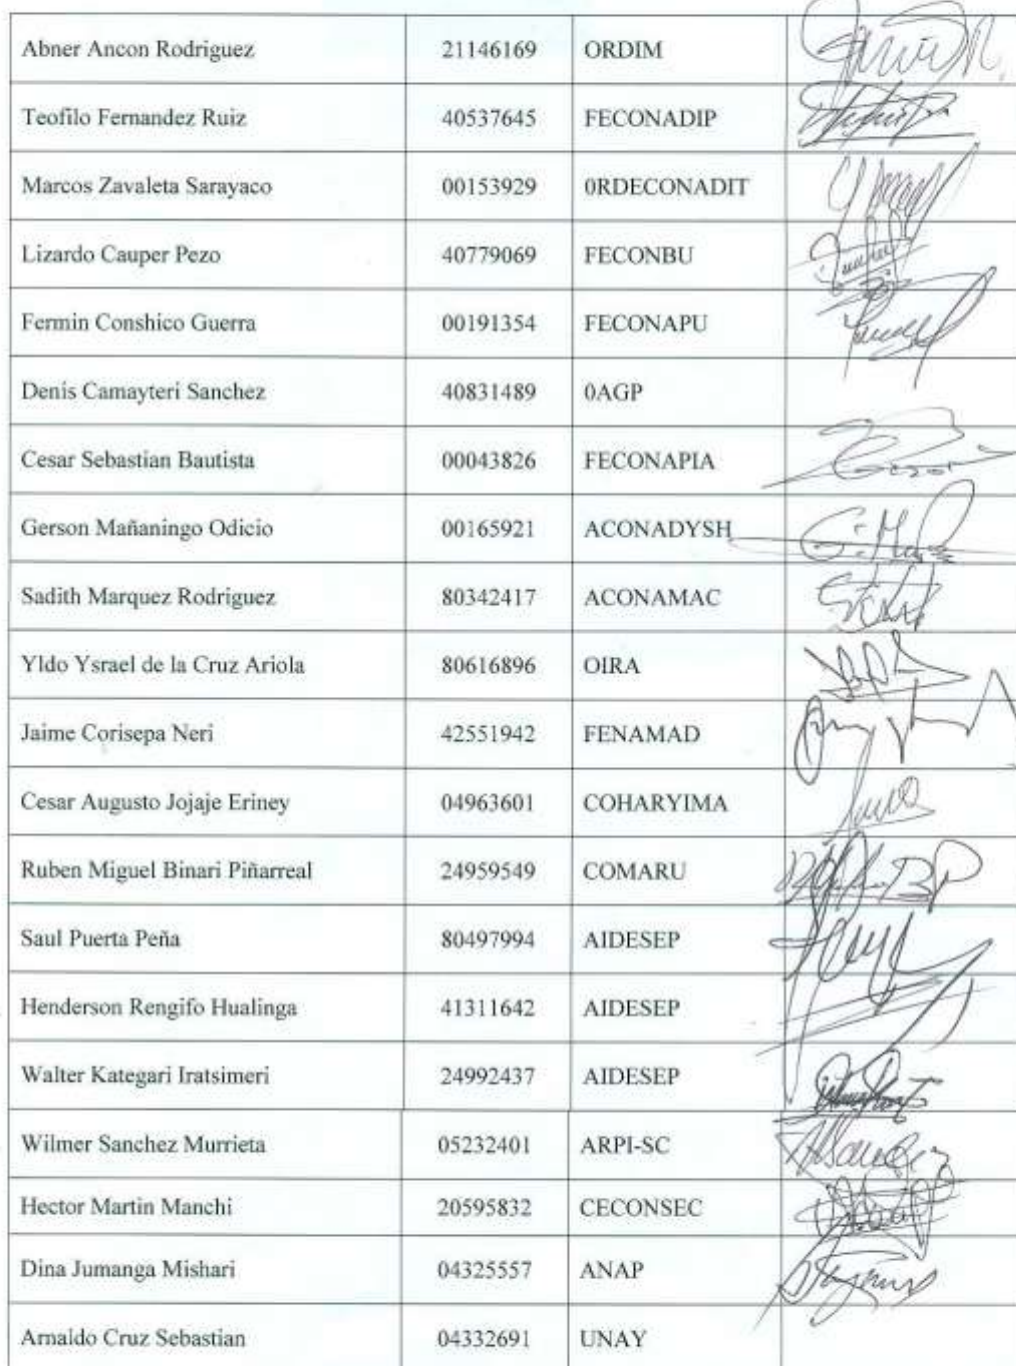 Abner Ancon Rodriguez 21146169 ORDIM
Teofilo Fernandez Ruiz 40537645 FECONADIP
Marcos Zavaleta Sarayaco 00153929 0RDECONADIT
Lizardo Cauper Pezo 40779069 FECONBU
Fermin Conshico Guerra 00191354 FECONAPU
Denis Camayteri Sanchez 40831489 0AGP
Cesar Sebastian Bautista 00043826 FECONAPIA
Gerson Mañaningo Odicio 00165921 ACONADYSH
Sadith Marquez Rodriguez 80342417 ACONAMAC
Yldo Ysrael de la Cruz Ariola 80616896 OIRA
Jaime Corisepa Neri 42551942 FENAMAD
Cesar Augusto Jojaje Eriney 04963601 COHARYIMA
Ruben Miguel Binari Piñarreal 24959549 COMARU
Saul Puerta Peña 80497994 AIDESEP
Henderson Rengifo Hualinga 41311642 AIDESEP
Walter Kategari Iratsimeri 24992437 AIDESEP
Wilmer Sanchez Murrieta 05232401 ARPI-SC
Hector Martin Manchi 20595832 CECONSEC
Dina Jumanga Mishari 04325557 ANAP
Arnaldo Cruz Sebastian 04332691 UNAY